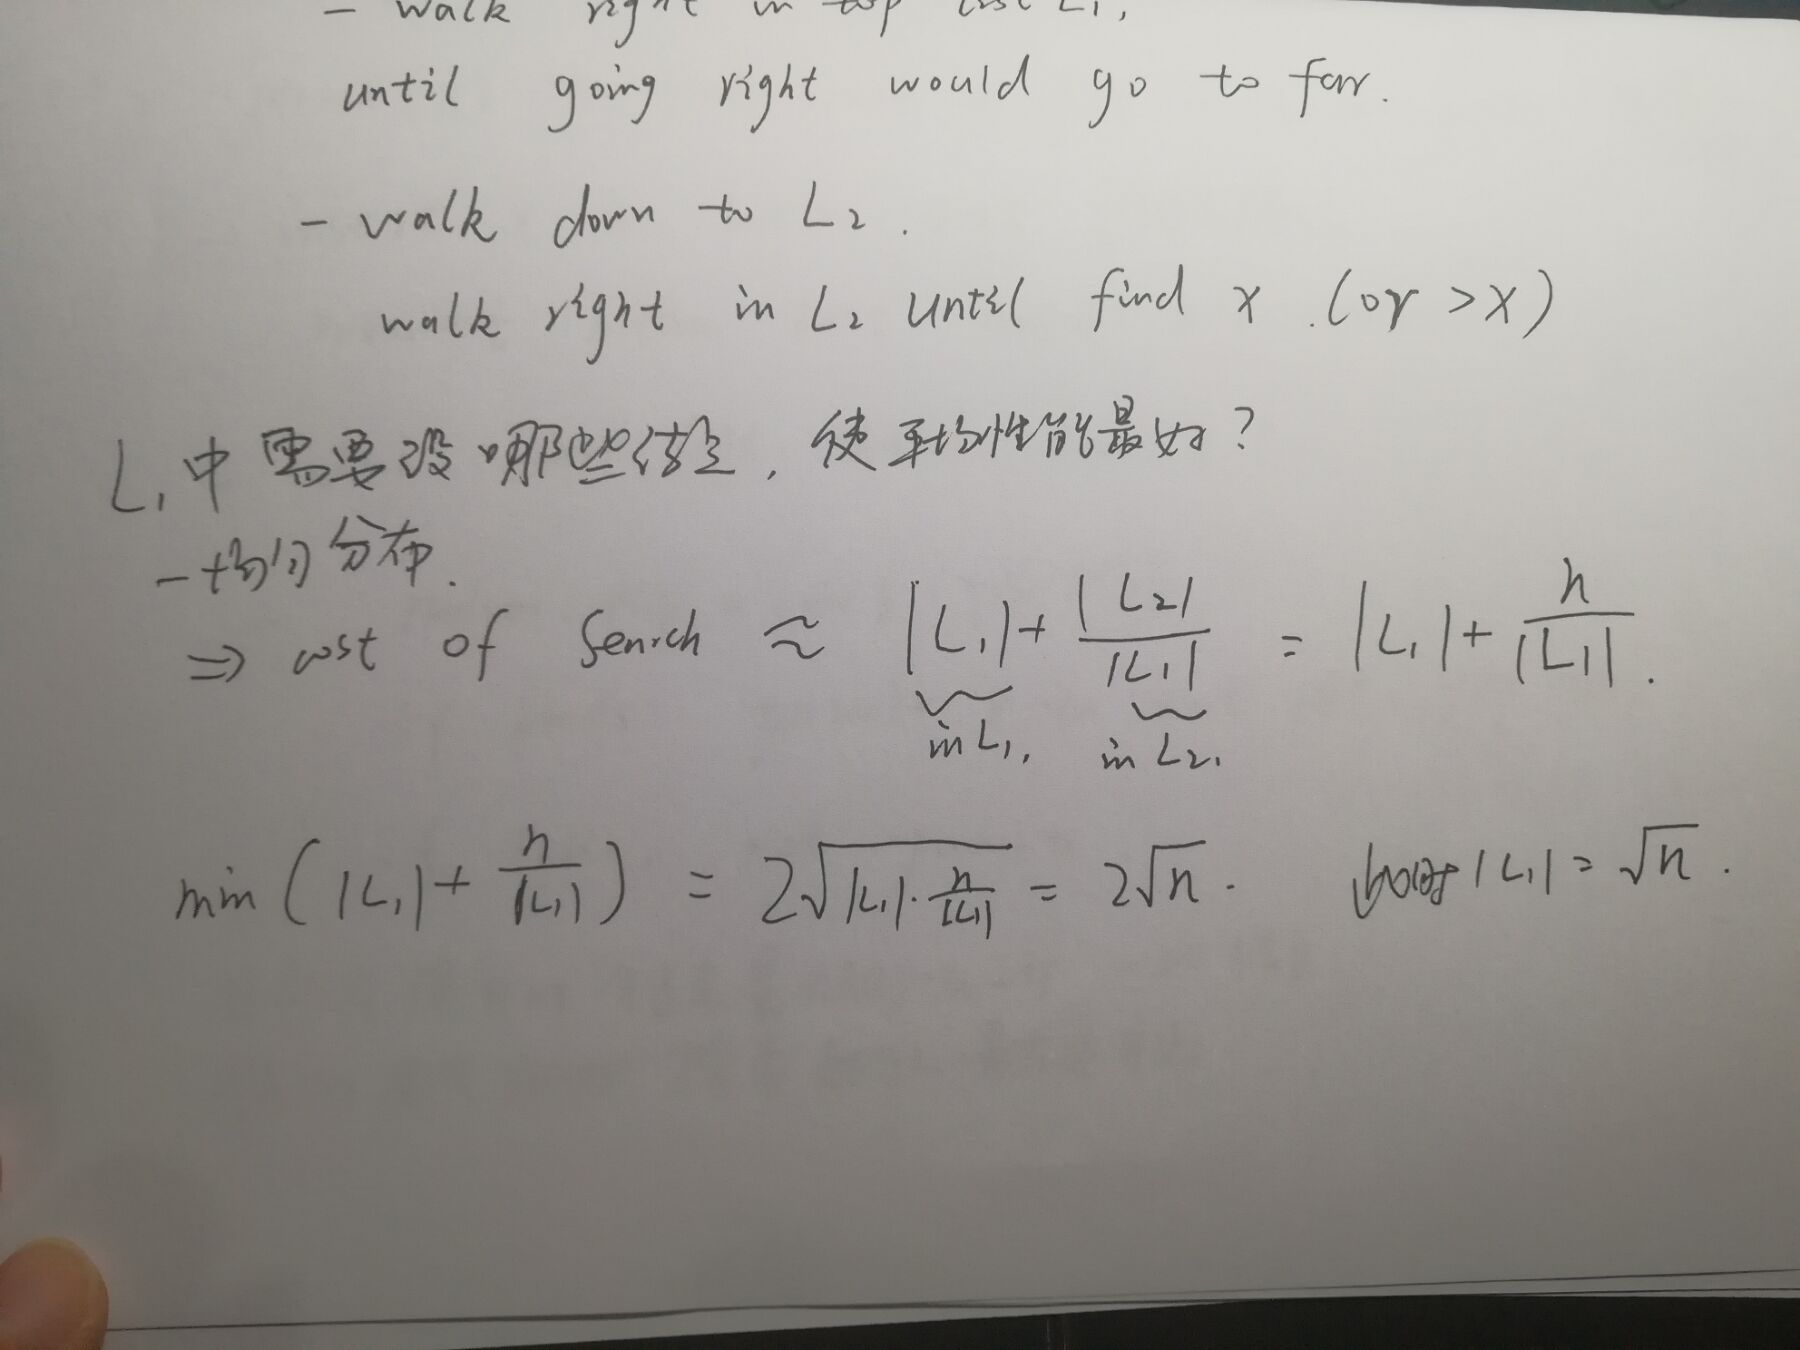 - walk right in top list L₁,
until going right would go to far.
- walk down to L₂.
walk right in L₂ until find x. (or >x)
L₁中需要设哪些结点,使平均性能最好?
- 均匀分布.
⇒ cost of Search ≈ |L₁| + |L₂|/|L₁| = |L₁| + n/|L₁|.
in L₁, in L₂,
min(|L₁| + n/|L₁|) = 2√(|L₁|·n/|L₁|) = 2√n. |L₁| = √n.